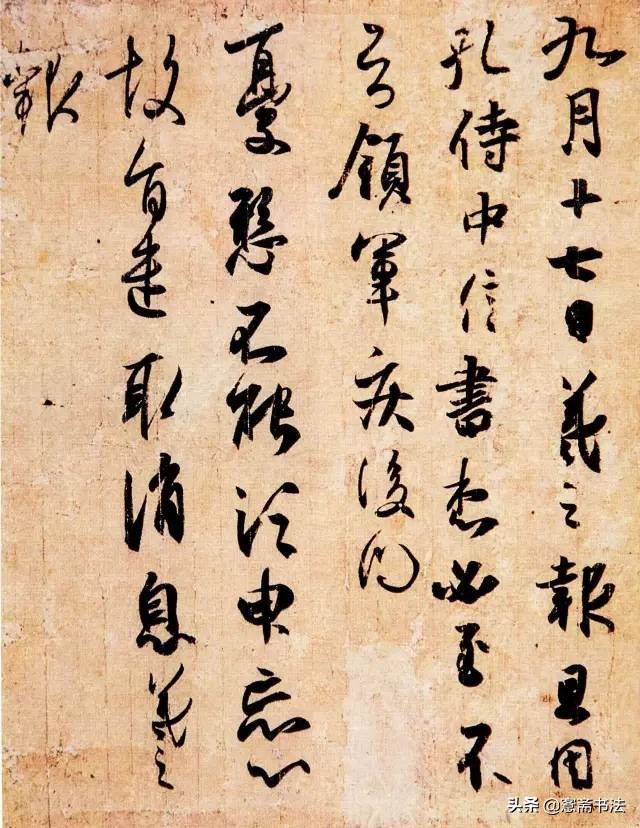 九月十七日羲之報且因
孔侍中信書想必至不
知領軍疾後問
憂懸不能須臾忘心
故旨遣取消息羲之
報
头条@愙斋书法